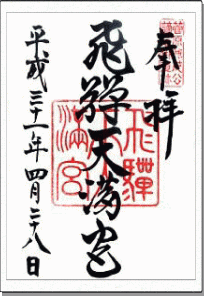 奉拝
飛騨天満宮
飛騨天満宮
平成三十一年四月二十八日